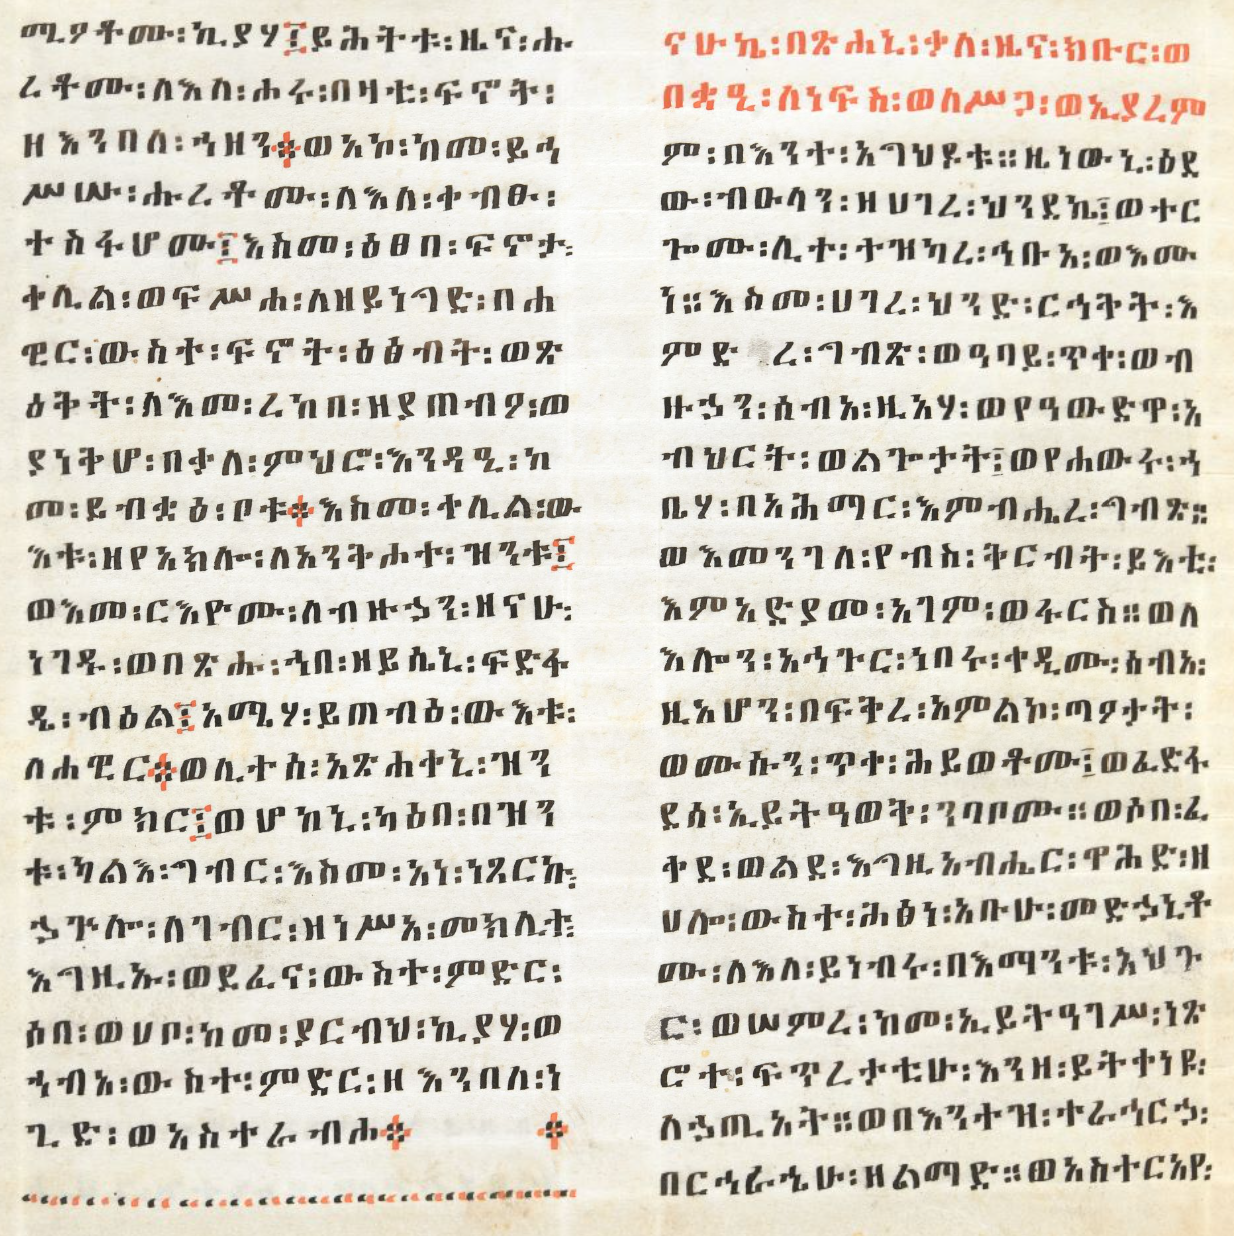 ሚዎቶሙ፡ኪያሃ፤ይሕትቱ፡ዜና፡ሑ
ረቶሙ፡ለእለ፡ሐሩ፡በዛቲ፡ፍኖት፡
ዘእንበለ፡ኀዘን፨ወአኮ፡ከመ፡ይኅ
ሥሡ፡ሑረቶሙ፡ለእለ፡ቀብፁ፡
ተስፋሆሙ፤እስመ፡ዕፀበ፡ፍኖታ፡
ቀሊል፡ወፍሥሐ፡ለዘይነግድ፡በሐ
ዊር፡ውስተ፡ፍኖት፡ዕፅብት፡ወጽ
ዕቅት፡ለእመ፡ረከበ፡ዘያጠብዎ፡ወ
ያነቅሆ፡በቃለ፡ምህሮ፡እንዳዒ፡ከ
መ፡ይብቋዕ፡ቦቱ፨እስመ፡ቀሊል፡ው
እቱ፡ዘየአክሎ፡ለአንቅሖተ፡ዝንቱ፤
ወእመ፡ርእዮሙ፡ለብዙኃን፡ዘናሁ፡
ነገዱ፡ወበጽሑ፡ኀበ፡ዘይሴኒ፡ፍድፋ
ዴ፡ብዕል፤አሜሃ፡ይጠብዕ፡ውእቱ፡
ለሐዊር፨ወሊተ፡ሰ፡አጽሐቀኒ፡ዝን
ቱ፡ምክር፤ወሆከኒ፡ካዕበ፡በዝን
ቱ፡ካልእ፡ግብር፡እስመ፡አነ፡ነጺርኩ፡
ኃጕሎ፡ለገብር፡ዘነሥአ፡መክሊተ፡
እግዚኡ፡ወደፈና፡ውስተ፡ምድር፡
ሶበ፡ወሀቦ፡ከመ፡ያርብህ፡ኪያሃ፡ወ
ኀብአ፡ውስተ፡ምድር፡ዘእንበለ፡ነ
ጊድ፡ወአስተራብሖ፨ ፨
ናሁኬ፡በጽሐኒ፡ቃለ፡ዜና፡ክቡር፡ወ
በቋዒ፡ለነፍስ፡ወለሥጋ፡ወኢያረም
ም፡በእንተ፡አግህዶቱ።ዜነውኒ፡ዕደ
ው፡ብዑላን፡ዘሀገረ፡ህንደኬ፤ወተር
ጐሙ፡ሊተ፡ተዝካረ፡ኅቡአ፡ወእሙ
ነ።እስመ፡ሀገረ፡ህንድ፡ርኅቅት፡እ
ምድረ፡ግብጽ፡ወዓባይ፡ጥቀ፡ወብ
ዙኃን፡ሰብአ፡ዚአሃ፡ወየዓውድዋ፡አ
ብህርት፡ወልጐታት፤ወየሐውሩ፡ኀ
ቤሃ፡በአሕማር፡እምብሔረ፡ግብጽ።
ወእመንገለ፡የብስ፡ትርብት፡ይእቲ፡
እምአድያመ፡አገም፡ወፋርስ።ወለ
እሎን፡አኅጉር፡ነበሩ፡ቀዲሙ፡ሰብአ፡
ዚአሆን፡በፍቅረ፡አምልኮ፡ጣዎታት፡
ወሙሱን፡ጥቀ፡ሕይወቶሙ፤ወፈድፋ
ደሰ፡ኢይትዓወት፡ንባቦሙ።ወሶበ፡ፈ
ቀደ፡ወልደ፡እግዚአብሔር፡ዋሕድ፡ዘ
ሀሎ፡ውስተ፡ሕፅነ፡አቡሁ፡መድኃኒቶ
ሙ፡ለእለ፡ይነብሩ፡በእማንቱ፡አህጉ
ር፡ወሠምረ፡ከመ፡ኢይትዓገሥ፡ነጽ
ሮተ፡ፍጥረታቲሁ፡እንዘ፡ይትቀነዩ፡
ለኃጢአት።ወበእንተዝ፡ተራኀርኃ፡
በርኅራኄሁ፡ዘልማድ።ወአስተርአየ፡